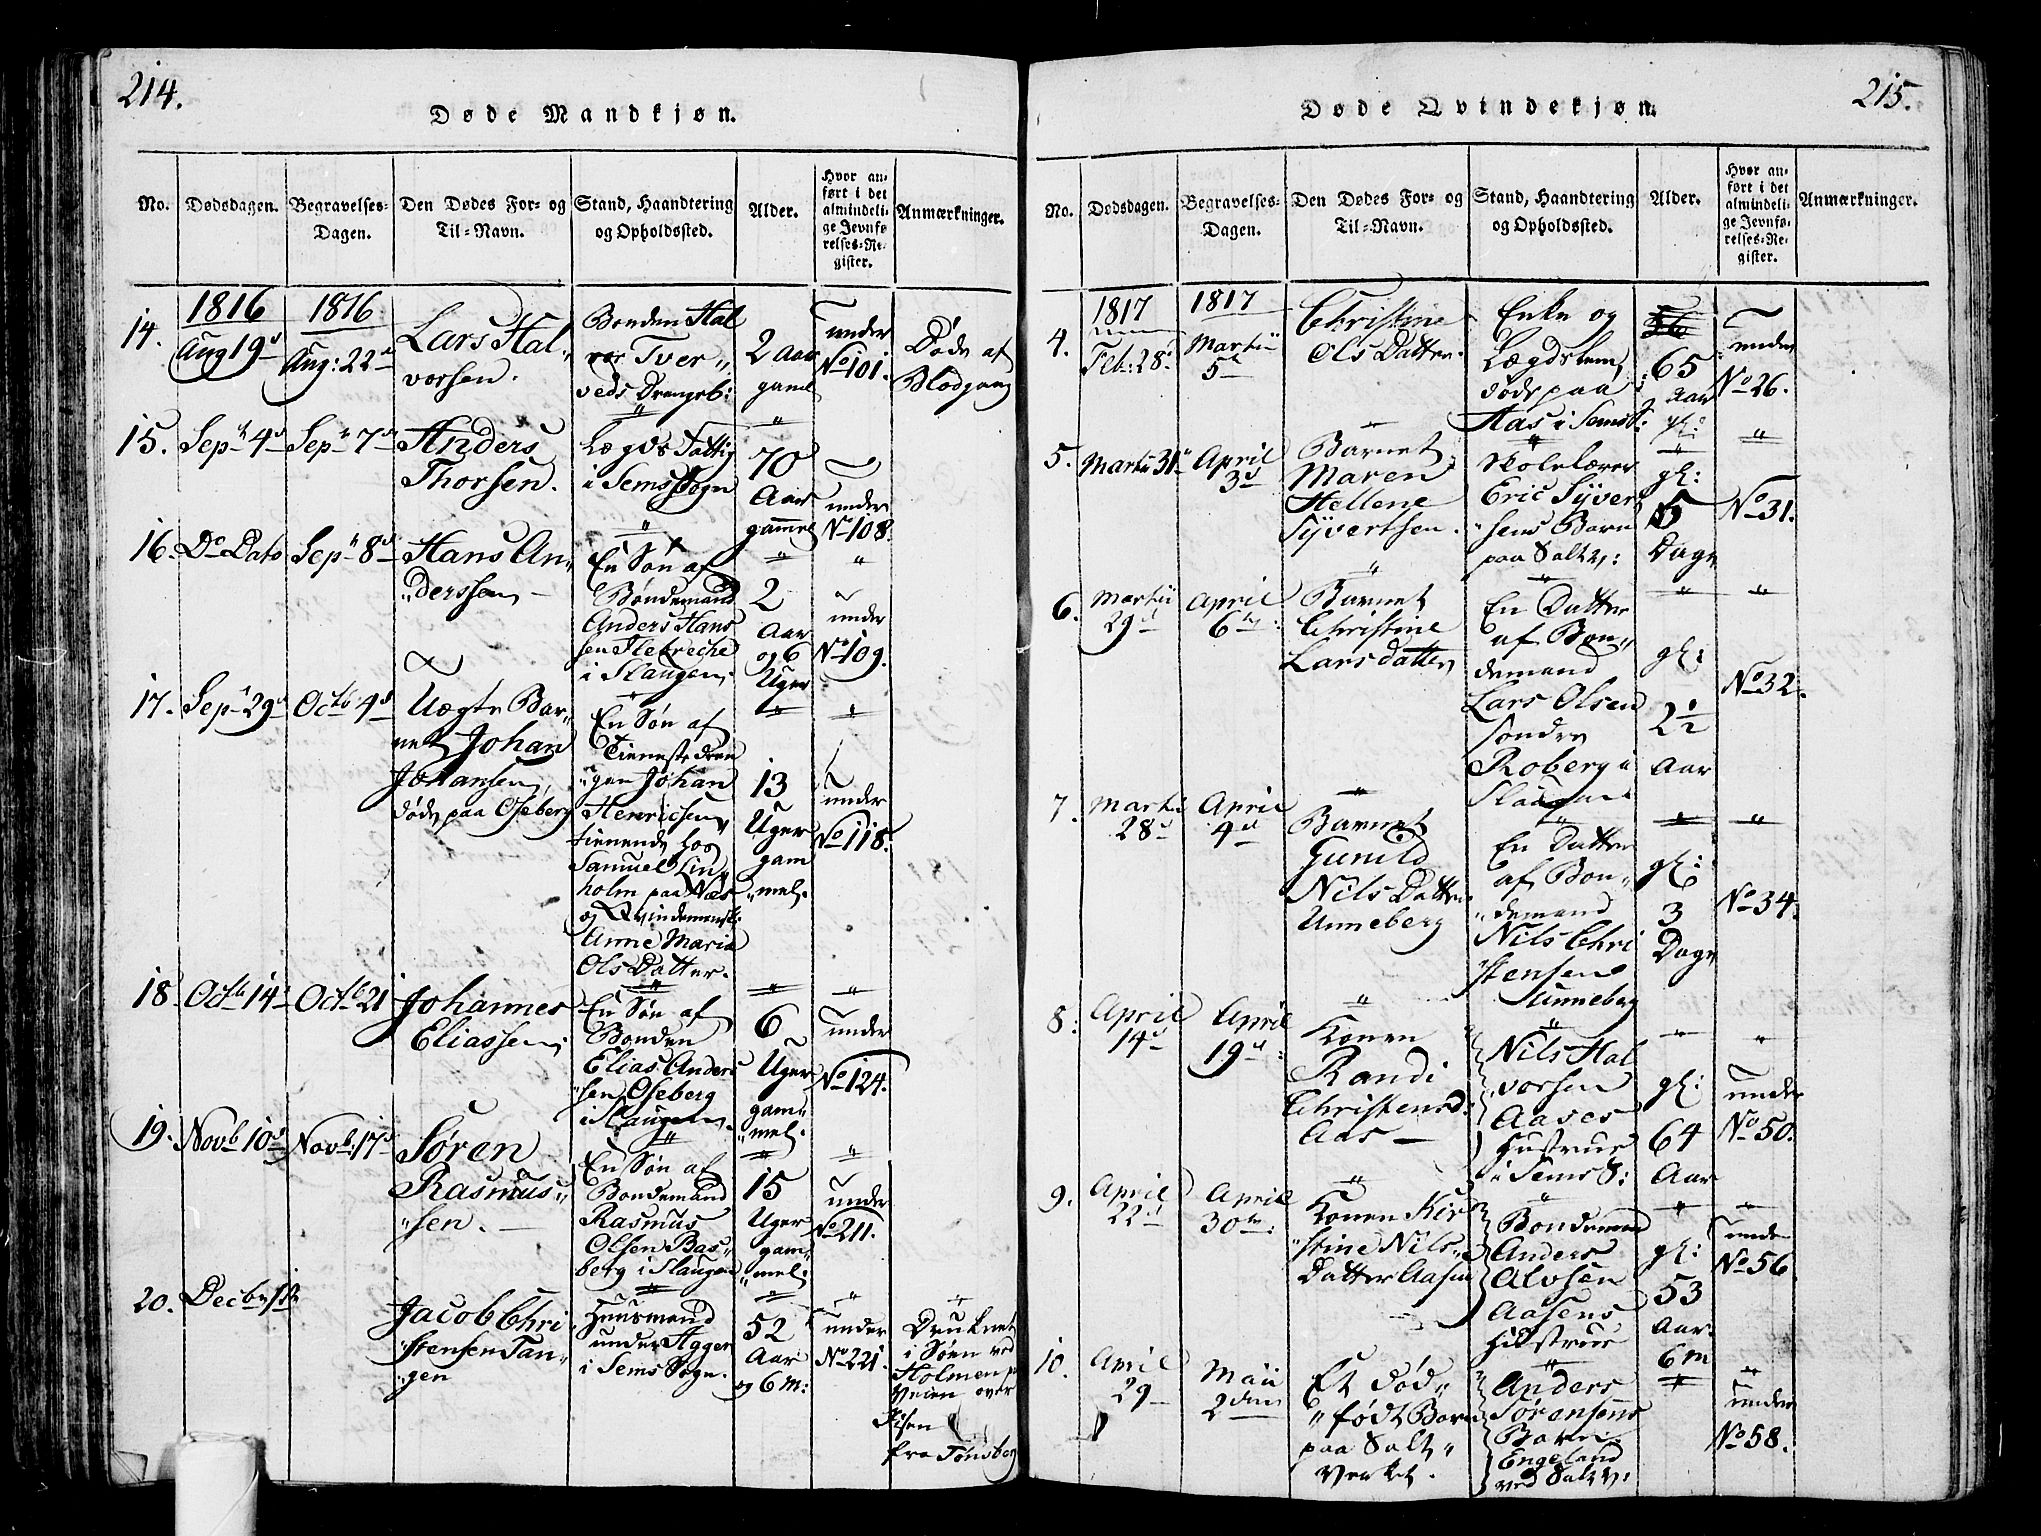 214.
Døde Mandkjøn.
No.
Dødsdagen.
Begravelses-
Dagen.
Den Dødes For- og
Til-Navn.
Stand, Haandtering
og Opholdssted.
Alder.
Hvor an-
ført i det
almindeli-
ge Jevnfø-
relses-Re-
gister.
Anmærkninger.
14.
1816
Aug 19d
1816
Aug: 22d
Lars Hal„
vorsen.
Bonden Hal
vor Tver„
veds Drengeb:
2 Aar
gaml
under
No 101.
Døde af
Blodgang
15.
Sept 4d
Sept 7d
Anders
Thorsen.
Lægds Fattig
i Sems Sogn
70
Aar
gammel
under
No 108.
16.
Do Dato
Sept 8d
Hans An„
„derssen
En Søn af
Bondemand
Anders Hans
sen
i Slaugen.
2
Aar
og 6
Uger
under
No 109.
17.
Sept 29d
Octb 4d
Uægte Bar„
net Johan
Johansen,
døde paa Oseberg
En Søn af
Tienestedren
„gen Johan
Henrichsen,
tienende hos
Samuel Lin„
holm paa Næs
og Qvindemensk:
Anne Maria
Ols Datter.
13
Uger
gam
„mel.
under
No 118.
18.
Octb 14d
Octb 21
Johannes
Eliassen.
En Søn af
Bonden
Elias Anders
„sen Oseberg
i Slaugen.
6
Uger
gam„
„mel.
under
No 124.
19.
Novb 10d
Novb: 17d
Søren
Rasmus„
„sen.
En Søn af
Bondemand
Rasmus
Olsen Bas„
berg i Slaugen
15
Uger
gam„
„mel.
under
No 211.
20.
Jacob Chri
„stensen Tan„
„gen
Huusmand
under Agger
i Sems Sogn.
52
Aar
og 6 M:
under
No 221.
Druknet
i Søen ved
Holmen paa
Veien over
Iisen
fra Tønsberg
215.
Døde Qvindekjøn.
No.
Dødsdagen.
Begravelses-
Dagen.
Den Dødes For- og
Til-Navn.
Stand, Haandtering
og Opholdssted.
Alder.
Hvor an-
ført i det
almindeli-
ge Jevnfø-
relses-Re-
gister.
Anmærkninger.
4.
1817
Feb: 28d
1817
Martii
5d
Christine
Ols Datter.
Enke og
Lægdslem,
døde paa
Aas i Sems S:
65
Aar
gl:
under
No 26.
5.
Martii 31d
April
3d
Barnet
Maren
Hellene
Syvertsen.
Skolelærer
Eric Syver
„sens Barn
paa Saltv:
gl:
5
Dage
No 31.
6.
Martii
29d
April
6te:
Barnet
Christine
Larsdatter
En Datter
af Bon„
demand
Lars Olsen
søndre
Roberg i
Slaugen.
gl:
2½
Aar
No 32.
7.
Martii
28d
April
4d
Barnet
Gunild
Nils Datter
Unneberg
En Datter
af Bon„
„demand
Nils Chri
„stensens
Unneberg
gl:
3
Dage
No 34.
8.
April
14d
April
19d:
Konen
Randi
Christensd:
Aas
Nils Hal
„vorsen
Aases
Hustrue
i Sems S:
gl:
64
Aar
under
No 50.
9.
April
22d
April
30te:
Konen Kir
„stine Nils„
Datter Aasen
Bondemand
Anders
Alvsen
Aasens
Hustrue
gl:
53
Aar.
6 m
under
No 56.
10.
April
29
Maii
2den
Et død„
„født Barn
paa Salt„
Verket.
Anders
Sørensens
Barn.
Engeland
ved Saltv:
under
No 58.